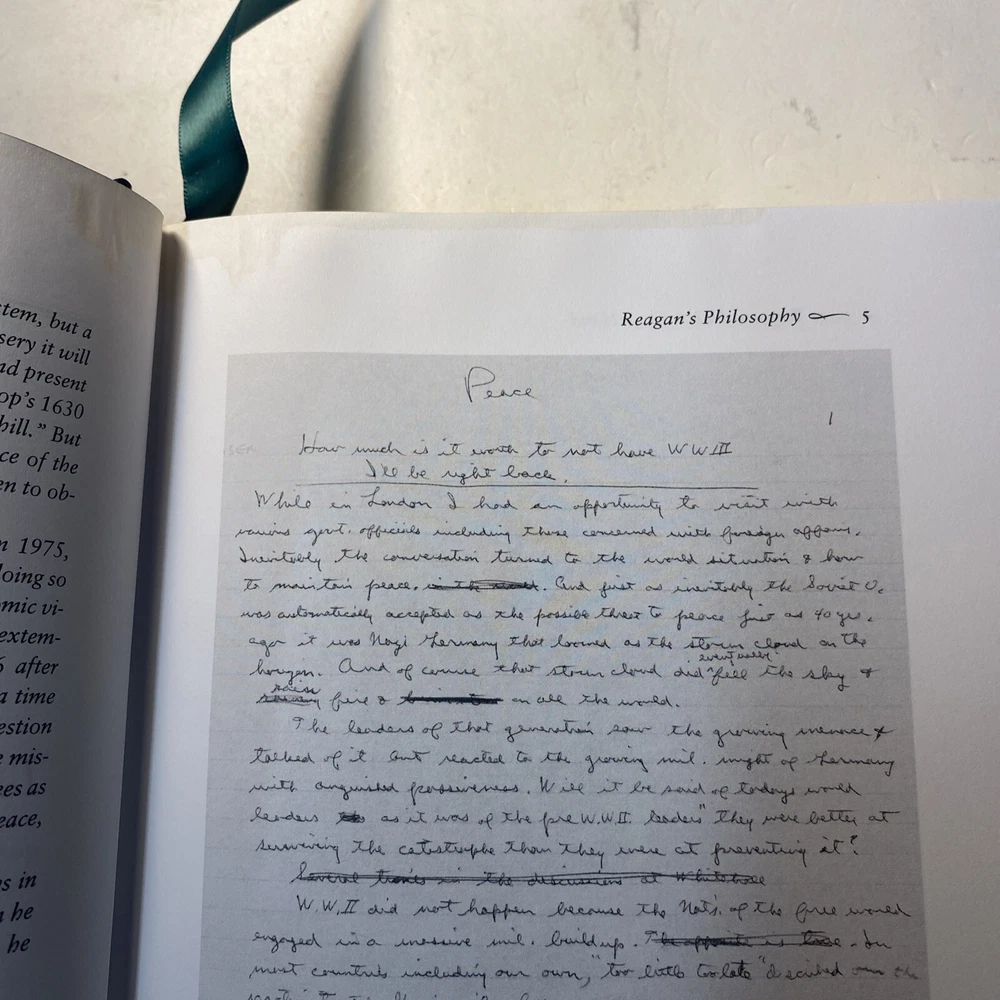 tem, but a
sery it will
nd present
op's 1630
hill." But
ce of the
en to ob-
n 1975,
doing so
mic vi-
extem-
5 after
a time
estion
e mis-
ees as
eace,
s in
n he
he
Reagan's Philosophy 5
Peace
1
How much is it worth to not have W W III
I'll be right back.
While in London I had an opportunity to visit with
various govt. officials including those concerned with foreign affairs.
Inevitably the conversation turned to the world situation & how
to maintain peace, in the world. And just as inevitably the Soviet U.
was automatically accepted as the possible threat to peace just as 40 yrs.
ago it was Nazi Germany that loomed as the storm cloud on the
horizon. And of course that storm cloud did eventually fill the sky &
rain fire & on all the world.
The leaders of that generation saw the growing menace &
talked of it but reacted to the growing mil. might of Germany
with anguished passiveness. Will it be said of todays world
leaders as it was of the pre W.W.II leaders "they were better at
surviving the catastrophe than they were at preventing it?
Several times in the discussions at Whitehall
W.W.II did not happen because the Nat's. of the free world
engaged in a massive mil. buildup. The opposite is true. In
most countries including our own, "too little too late" described the